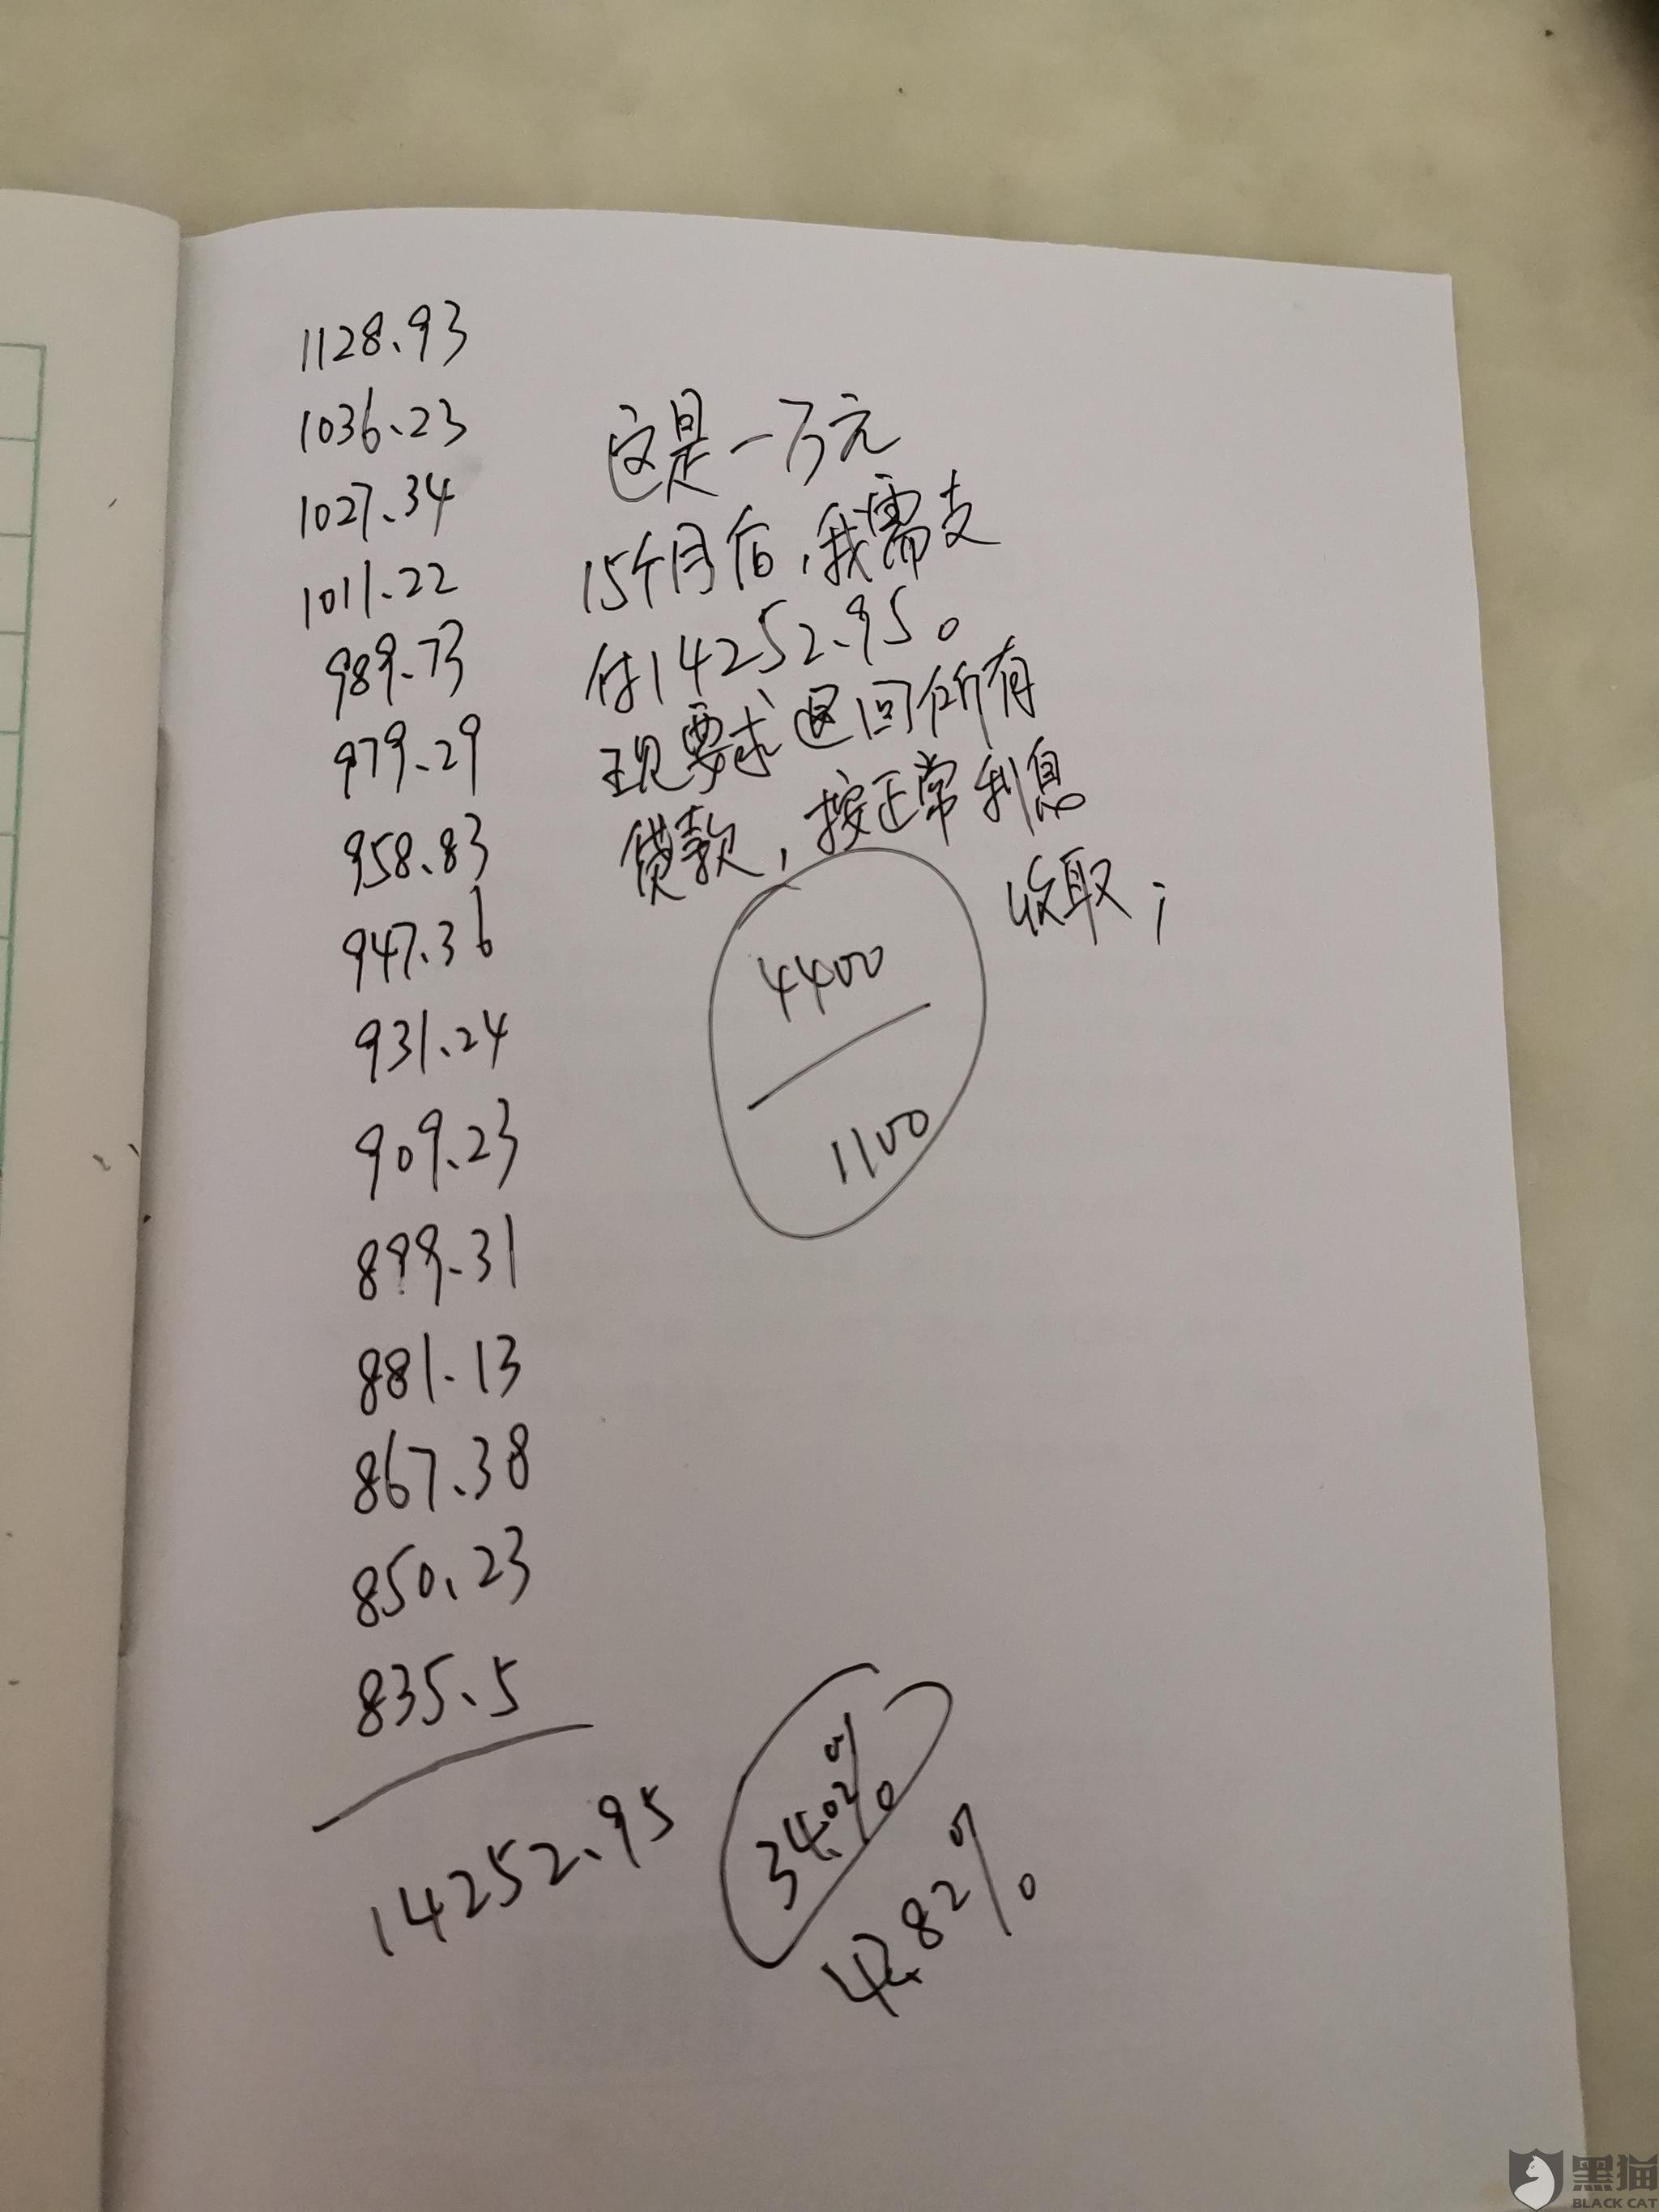 1128.93
1036.23
1027.34
1011.22
989.73
979.29
958.83
947.36
931.24
909.23
899.31
881.13
867.38
850.23
835.5
14252.95
这是一万元
15个月后,我需支
付14252.95。
现要求退回所有
贷款,按正常利息
收取;
4400
1100
34.02%
42.82%
黑猫
BLACK CAT